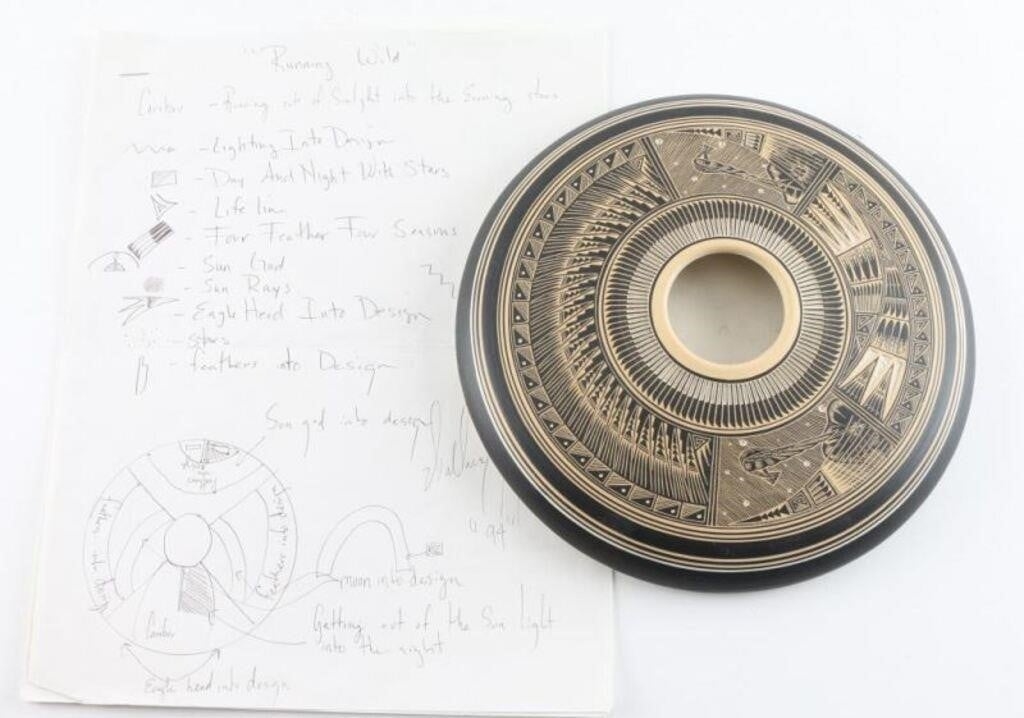 "Running Wild"
Caribou - Running out of Sunlight into the Evening stars
- Lighting Into Design
- Day And Night With Stars
- Life line
- Four Feather Four Seasons
- Sun God
- Sun Rays
- Eagle Head Into Design
- stars
- feathers into Design
Sun god into design
feathers into design
Feathers into design
moon into design
Caribou
Getting out of the Sun light
into the night
Eagle head into design